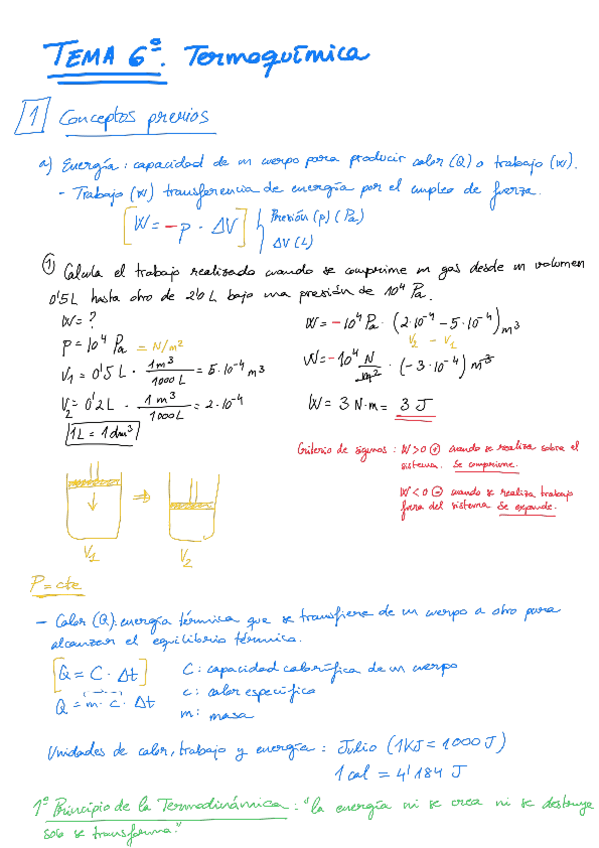 TEMA 6º. Termoquímica
1 Conceptos previos
a) Energía: capacidad de un cuerpo para producir calor (Q) o trabajo (W).
- Trabajo (W) transferencia de energía por el empleo de fuerza.
[W = -p · ΔV] Presión (p) (Pa)
ΔV (L)
1) Calcula el trabajo realizado cuando se comprime un gas desde un volumen
0'5 L hasta otro de 2'0 L bajo una presión de 10⁴ Pa.
W = ?
p = 10⁴ Pa = N/m²
V₁ = 0'5 L · 1 m³ / 1000 L = 5·10⁻⁴ m³
V₂ = 0'2 L · 1 m³ / 1000 L = 2·10⁻⁴
1L = 1dm³
W = -10⁴ Pa · (2·10⁻⁴ - 5·10⁻⁴) m³
V₂ - V₁
W = -10⁴ N/m² · (-3·10⁻⁴) m³
W = 3 N·m = 3 J
Criterio de signos: W>0 ⊕ cuando se realiza sobre el
sistema. Se comprime.
W<0 ⊖ cuando se realiza trabajo
fuera del sistema Se expande.
V₁ ⇒ V₂
P = cte
- Calor (Q): energía térmica que se transfiere de un cuerpo a otro para
alcanzar el equilibrio térmico.
[Q = C · Δt] C: capacidad calorífica de un cuerpo
Q = m · c · Δt c: calor específico
m: masa
Unidades de calor, trabajo y energía: Julio (1KJ = 1000 J)
1 cal = 4'184 J
1º Principio de la Termodinámica: "la energía ni se crea ni se destruye
solo se transforma."